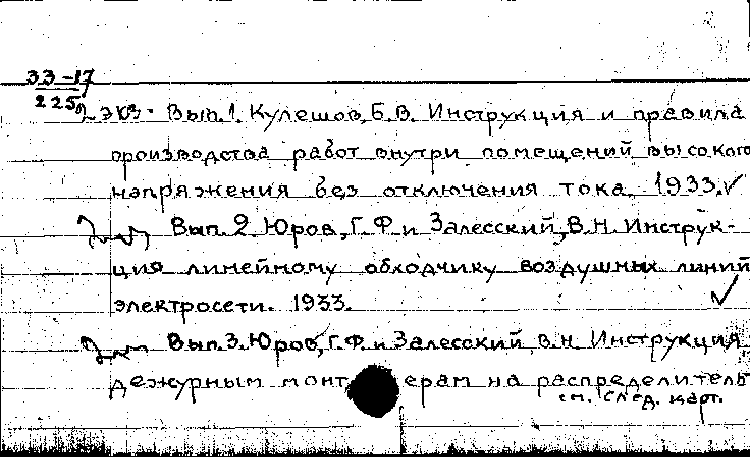 33-17
225
2 экз. Вып.1. Кулешов, Б.В. Инструкция и правила
производства работ внутри помещений высокого
напряжения без отключения тока. 1933. ✓
Вып. 2. Юров, Г.Ф. и Залесский, В.Н. Инструк-
ция линейному обходчику воздушных линий
электросети. 1933. ✓
Вып.3. Юров, Г.Ф. и Залесский, В.Н. Инструкция
дежурным монтерам на распределитель
см. след. карт.